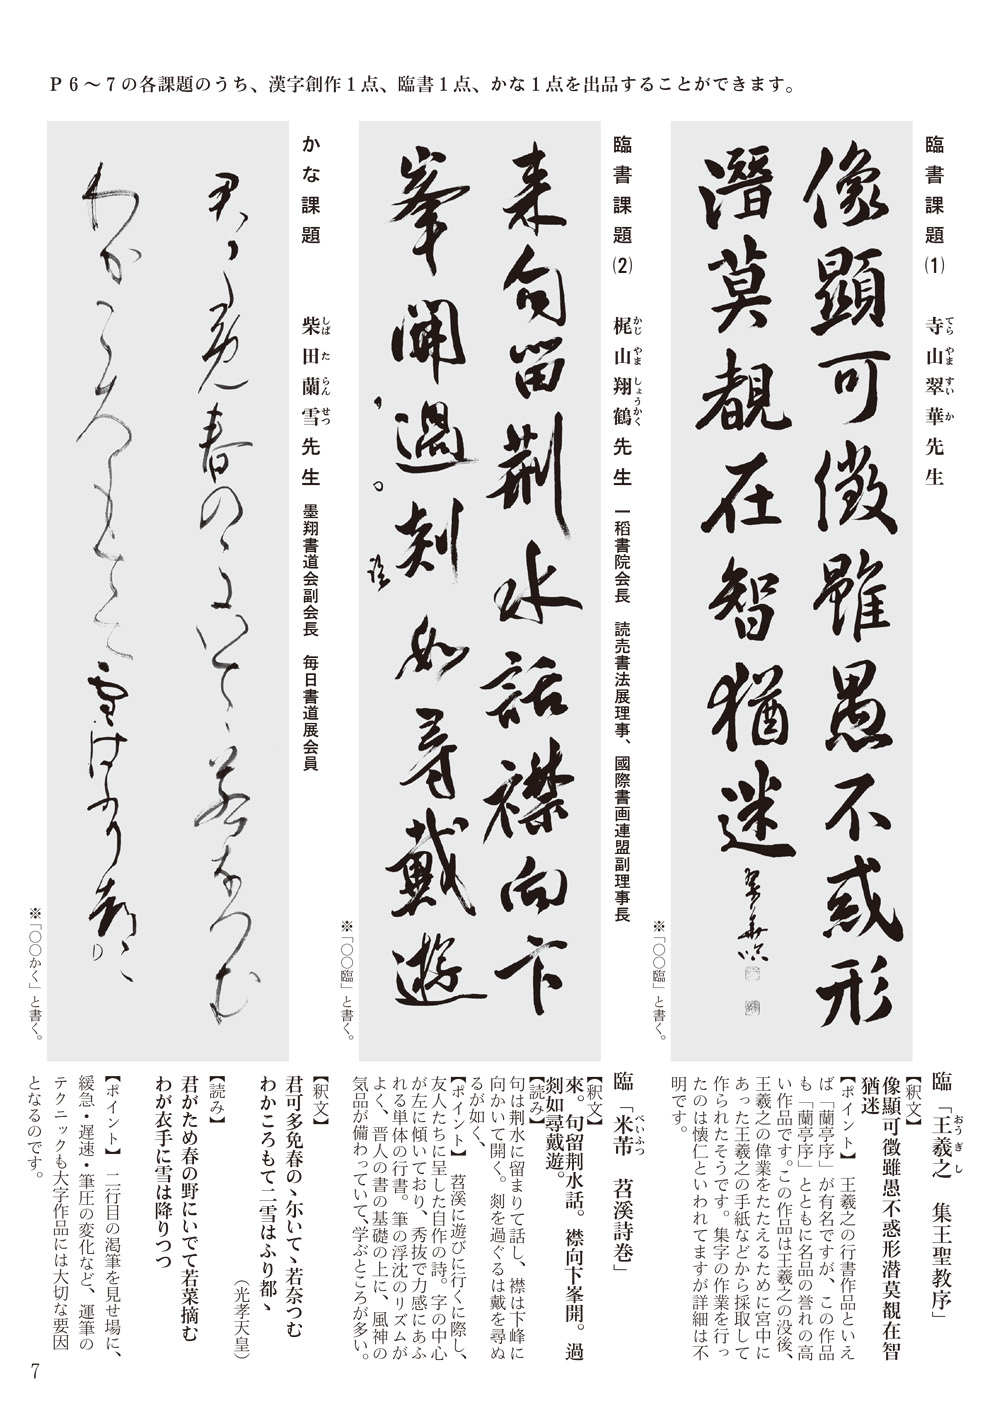 P6～7の各課題のうち、漢字創作1点、臨書1点、かな1点を出品することができます。
臨書課題(1)
寺山翠華先生
てらやますいか
像顕可徴雖愚不惑形
潜莫覩在智猶迷
翠華臨
※「○○臨」と書く。
臨「王羲之　集王聖教序」
おうぎし
【釈文】
像顕可徴雖愚不惑形潜莫覩在智
猶迷
【ポイント】　王羲之の行書作品といえ
ば「蘭亭序」が有名ですが、この作品
も「蘭亭序」とともに名品の誉れの高
い作品です。この作品は王羲之の没後、
王羲之の偉業をたたえるために宮中に
あった王羲之の手紙などから採取して
作られたそうです。集字の作業を行っ
たのは懐仁といわれてますが詳細は不
明です。
臨書課題(2)
梶山翔鶴先生　一稻書院会長　読売書法展理事、國際書画連盟副理事長
かじやましょうかく
来句留荆水話襟向卞
峯開過剡如尋戴遊
臨
※「○○臨」と書く。
臨「米芾　苕溪詩巻」
べいふつ
【釈文】
來。句留荆水話。襟向卞峯開。過
剡如尋戴遊。
【読み】
句は荆水に留まりて話し、襟は卞峰に
向かいて開く。剡を過ぐるは戴を尋ぬ
るが如く、
【ポイント】　苕溪に遊びに行くに際し、
友人たちに呈した自作の詩。字の中心
が左に傾いており、秀抜で力感にあふ
れる単体の行書。筆の浮沈のリズムが
よく、晋人の書の基礎の上に、風神の
気品が備わっていて、学ぶところが多い。
かな課題
柴田蘭雪先生　墨翔書道会副会長　毎日書道展会員
しばたらんせつ
君可多免春のゝ尓いてゝ若奈つむ
わかころもて二雪はふり都ゝ
※「○○かく」と書く。
【釈文】
君可多免春のゝ尓いてゝ若奈つむ
わかころもて二雪はふり都ゝ
（光孝天皇）
【読み】
君がため春の野にいでて若菜摘む
わが衣手に雪は降りつつ
【ポイント】　二行目の渇筆を見せ場に、
緩急・遅速・筆圧の変化など、運筆の
テクニックも大字作品には大切な要因
となるのです。
7